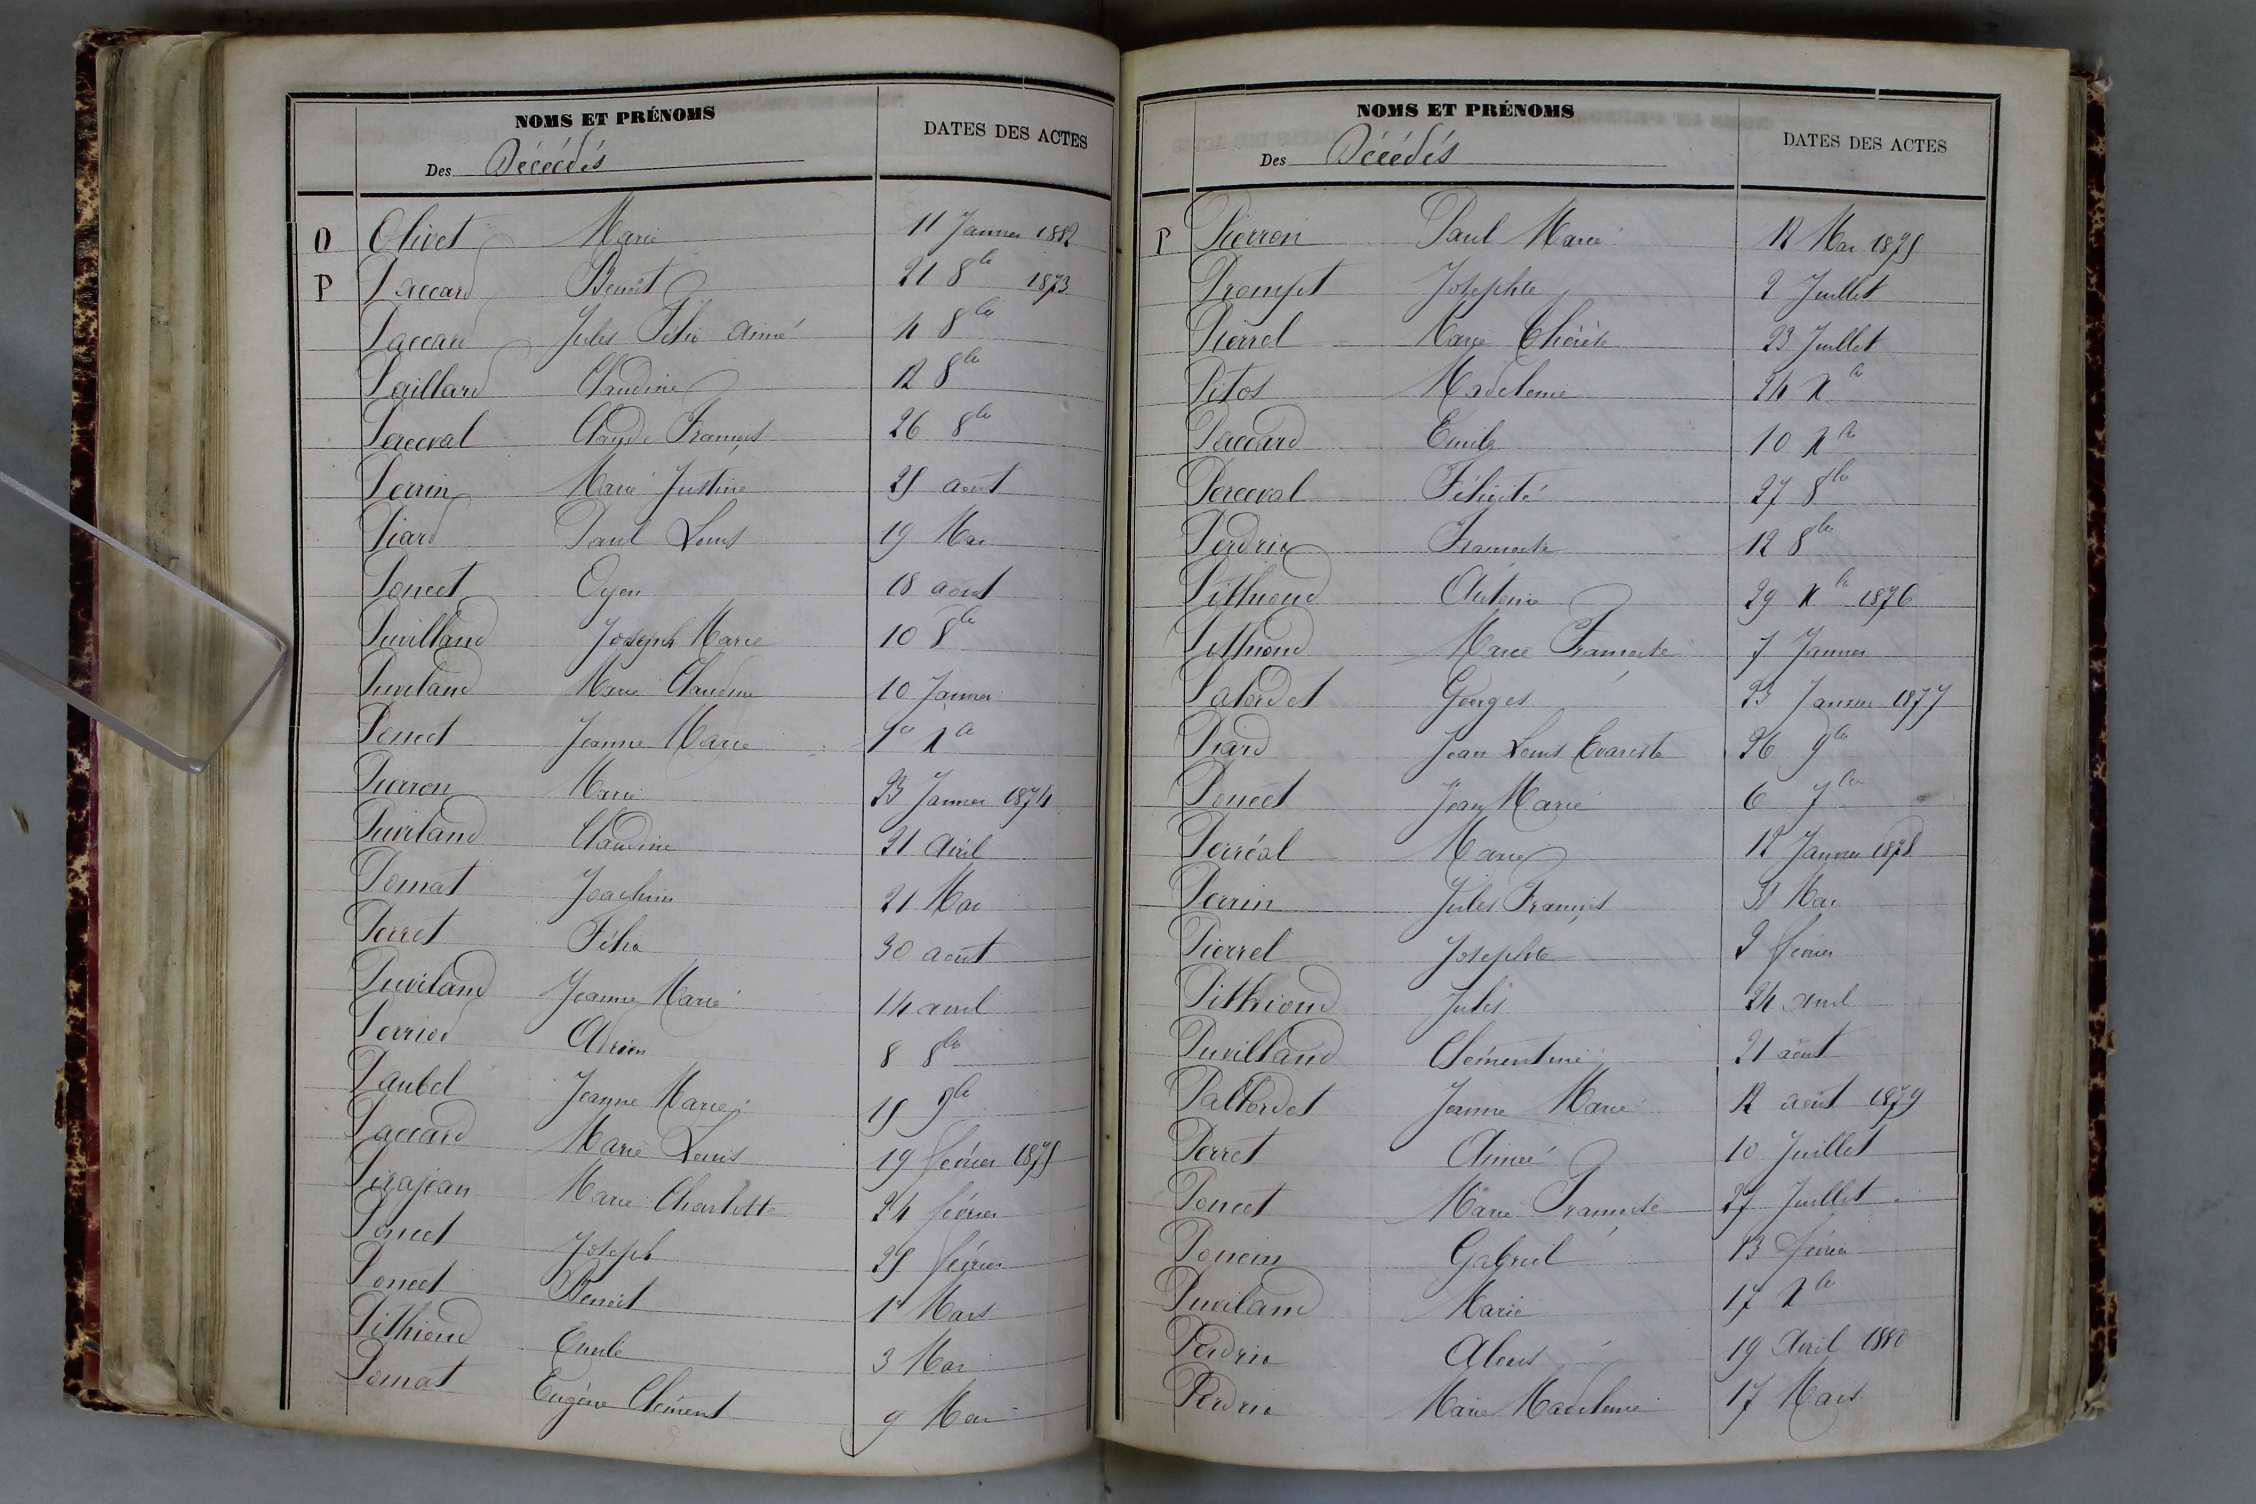 NOMS ET PRÉNOMS
Des Décédés
DATES DES ACTES
O Olivet Marie 11 Janvier 1882
P Paccard Benoît 21 8bre 1873
Paccard Jules Félix Aimé 4 8bre
Paillard Claudine 12 8bre
Perceval Claude François 26 8bre
Perrin Marie Justine 25 août
Piard Paul Louis 19 Mai
Poncet Oyen 18 août
Puvilland Joseph Marie 10 8bre
Puviland Marie Claudine 10 Janvier
Poncet Jeanne Marie 1er Xbre
Pierron Marie 23 Janvier 1874
Puviland Claudine 21 Avril
Pomat Joachim 21 Mai
Perret Félix 30 août
Puviland Jeanne Marie 14 avril
Perriod Adrien 8 8bre
Paubel Jeanne Marie 15 9bre
Paccard Marie Louis 19 février 1875
Pirajean Marie Charlotte 24 février
Poncet Joseph 25 février
Poncet Benoit 1er Mars
Pithioud Emile 3 Mai
Pomat Eugène Clément 9 Mai
NOMS ET PRÉNOMS
Des Décédés
DATES DES ACTES
P Pierron Paul Marie 12 Mai 1875
Prompt Josephte 2 Juillet
Pierrel Marie Thérèse 23 Juillet
Pitos Madeleine 24 Xbre
Paccard Emile 10 Xbre
Perceval Félicité 27 8bre
Perdrix Françoise 12 8bre
Pithioud Antoine 29 Xbre 1876
Pithioud Marie Françoise 7 Janvier
Palordet Georges 23 Janvier 1877
Piard Jean Louis Evariste 26 9bre
Poncet Jean Marie 6 7bre
Perréal Marie 12 Janvier 1878
Perrin Jules François 31 Mai
Pierrel Josephte 2 février
Pithioud Jules 24 avril
Puvilland Clémentine 21 août
Pallordet Jeanne Marie 12 août 1879
Perret Aimée 10 Juillet
Poncet Marie Françoise 27 Juillet
Poncin Gabriel 13 février
Puviland Marie 17 Xbre
Perdrix Alexis 19 Avril 1880
Perdrix Marie Madeleine 17 Mars